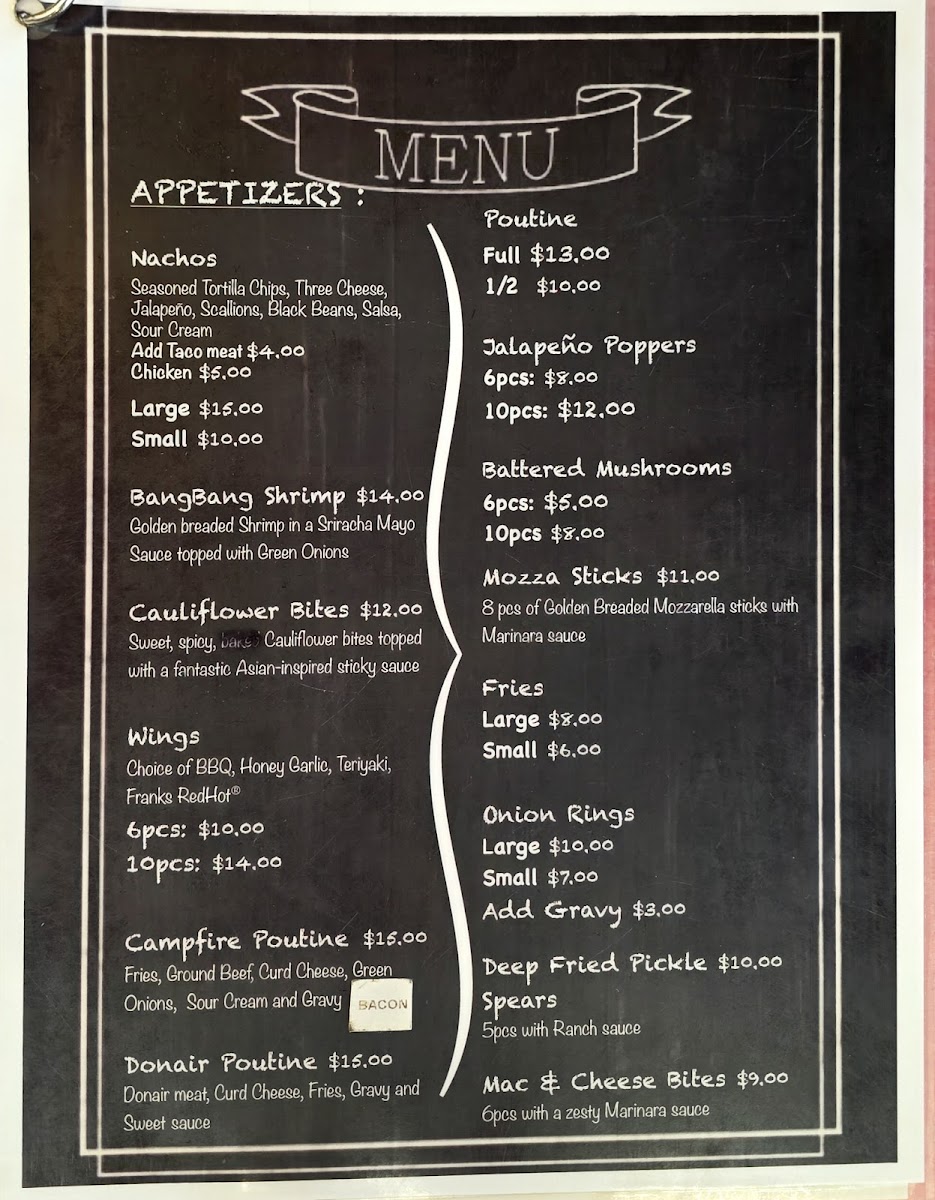 MENU
APPETIZERS :
Nachos
Seasoned Tortilla Chips, Three Cheese,
Jalapeño, Scallions, Black Beans, Salsa,
Sour Cream
Add Taco meat $4.00
Chicken $5.00
Large $15.00
Small $10.00
BangBang Shrimp $14.00
Golden breaded Shrimp in a Sriracha Mayo
Sauce topped with Green Onions
Cauliflower Bites $12.00
Sweet, spicy, Cauliflower bites topped
with a fantastic Asian-inspired sticky sauce
Wings
Choice of BBQ, Honey Garlic, Teriyaki,
Franks RedHot®
6pcs: $10.00
10pcs: $14.00
Campfire Poutine $15.00
Fries, Ground Beef, Curd Cheese, Green
Onions, Sour Cream and Gravy BACON
Donair Poutine $15.00
Donair meat, Curd Cheese, Fries, Gravy and
Sweet sauce
Poutine
Full $13.00
1/2 $10.00
Jalapeño Poppers
6pcs: $8.00
10pcs: $12.00
Battered Mushrooms
6pcs: $5.00
10pcs $8.00
Mozza Sticks $11.00
8 pcs of Golden Breaded Mozzarella sticks with
Marinara sauce
Fries
Large $8.00
Small $6.00
Onion Rings
Large $10.00
Small $7.00
Add Gravy $3.00
Deep Fried Pickle $10.00
Spears
5pcs with Ranch sauce
Mac & Cheese Bites $9.00
6pcs with a zesty Marinara sauce